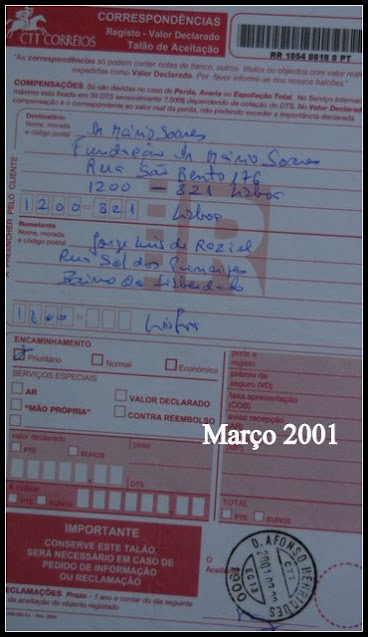 CTT CORREIOS
CORRESPONDÊNCIAS
Registo - Valor Declarado
Talão de Aceitação
RR 1054 8616 0 PT
"As correspondências só podem conter notas de banco, outros títulos ou objectos com valor real
expedidas como Valor Declarado. Por favor informe-se nos nossos balcões."
COMPENSAÇÕES São devidas no caso de Perda, Avaria ou Espoliação Total. No Serviço
máximo está fixado em 30 DTS sensivelmente 7.500$ dependendo da cotação do DTS. No Valor
compensação é o correspondente ao valor real da perda, não podendo exceder a importância declarada.
A PREENCHER PELO CLIENTE
Destinatário
Nome, morada
e código postal
Dr Mário Soares
Fundação Dr Mário Soares
Rua São Bento 176
1200 - 821 Lisboa
1200-821 Lisboa
R
Remetente
Nome, morada
e código postal
Jorge Luis de Raziel
Rua Sol dos
Bairro da Liberdade
Lisboa
ENCAMINHAMENTO
Prioritário
Normal
Económico
SERVIÇOS ESPECIAIS
AR
VALOR DECLARADO
"MÃO PRÓPRIA"
CONTRA REEMBOLSO
porte e
registo
prémio de
seguro (VD)
taxa apresentação
(COB)
aviso recepção
Março 2001
valor declarado
PTE
EUROS
peso
A cobrar
PTE
EUROS
DTS
TOTAL
PTE
EUROS
IMPORTANTE
CONSERVE ESTE TALÃO,
SERÁ NECESSÁRIO EM CASO DE
PEDIDO DE INFORMAÇÃO
OU RECLAMAÇÃO
D. AFONSO HENRIQUES
CTT
RECLAMAÇÕES Prazo - 1 ano a contar do dia seguinte
da aceitação do objecto registado